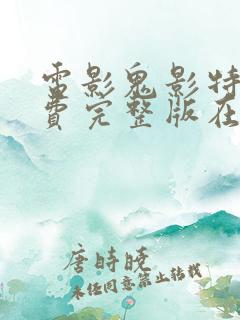 電影鬼影特
費完整版在
唐時晚
未经同意禁止转载